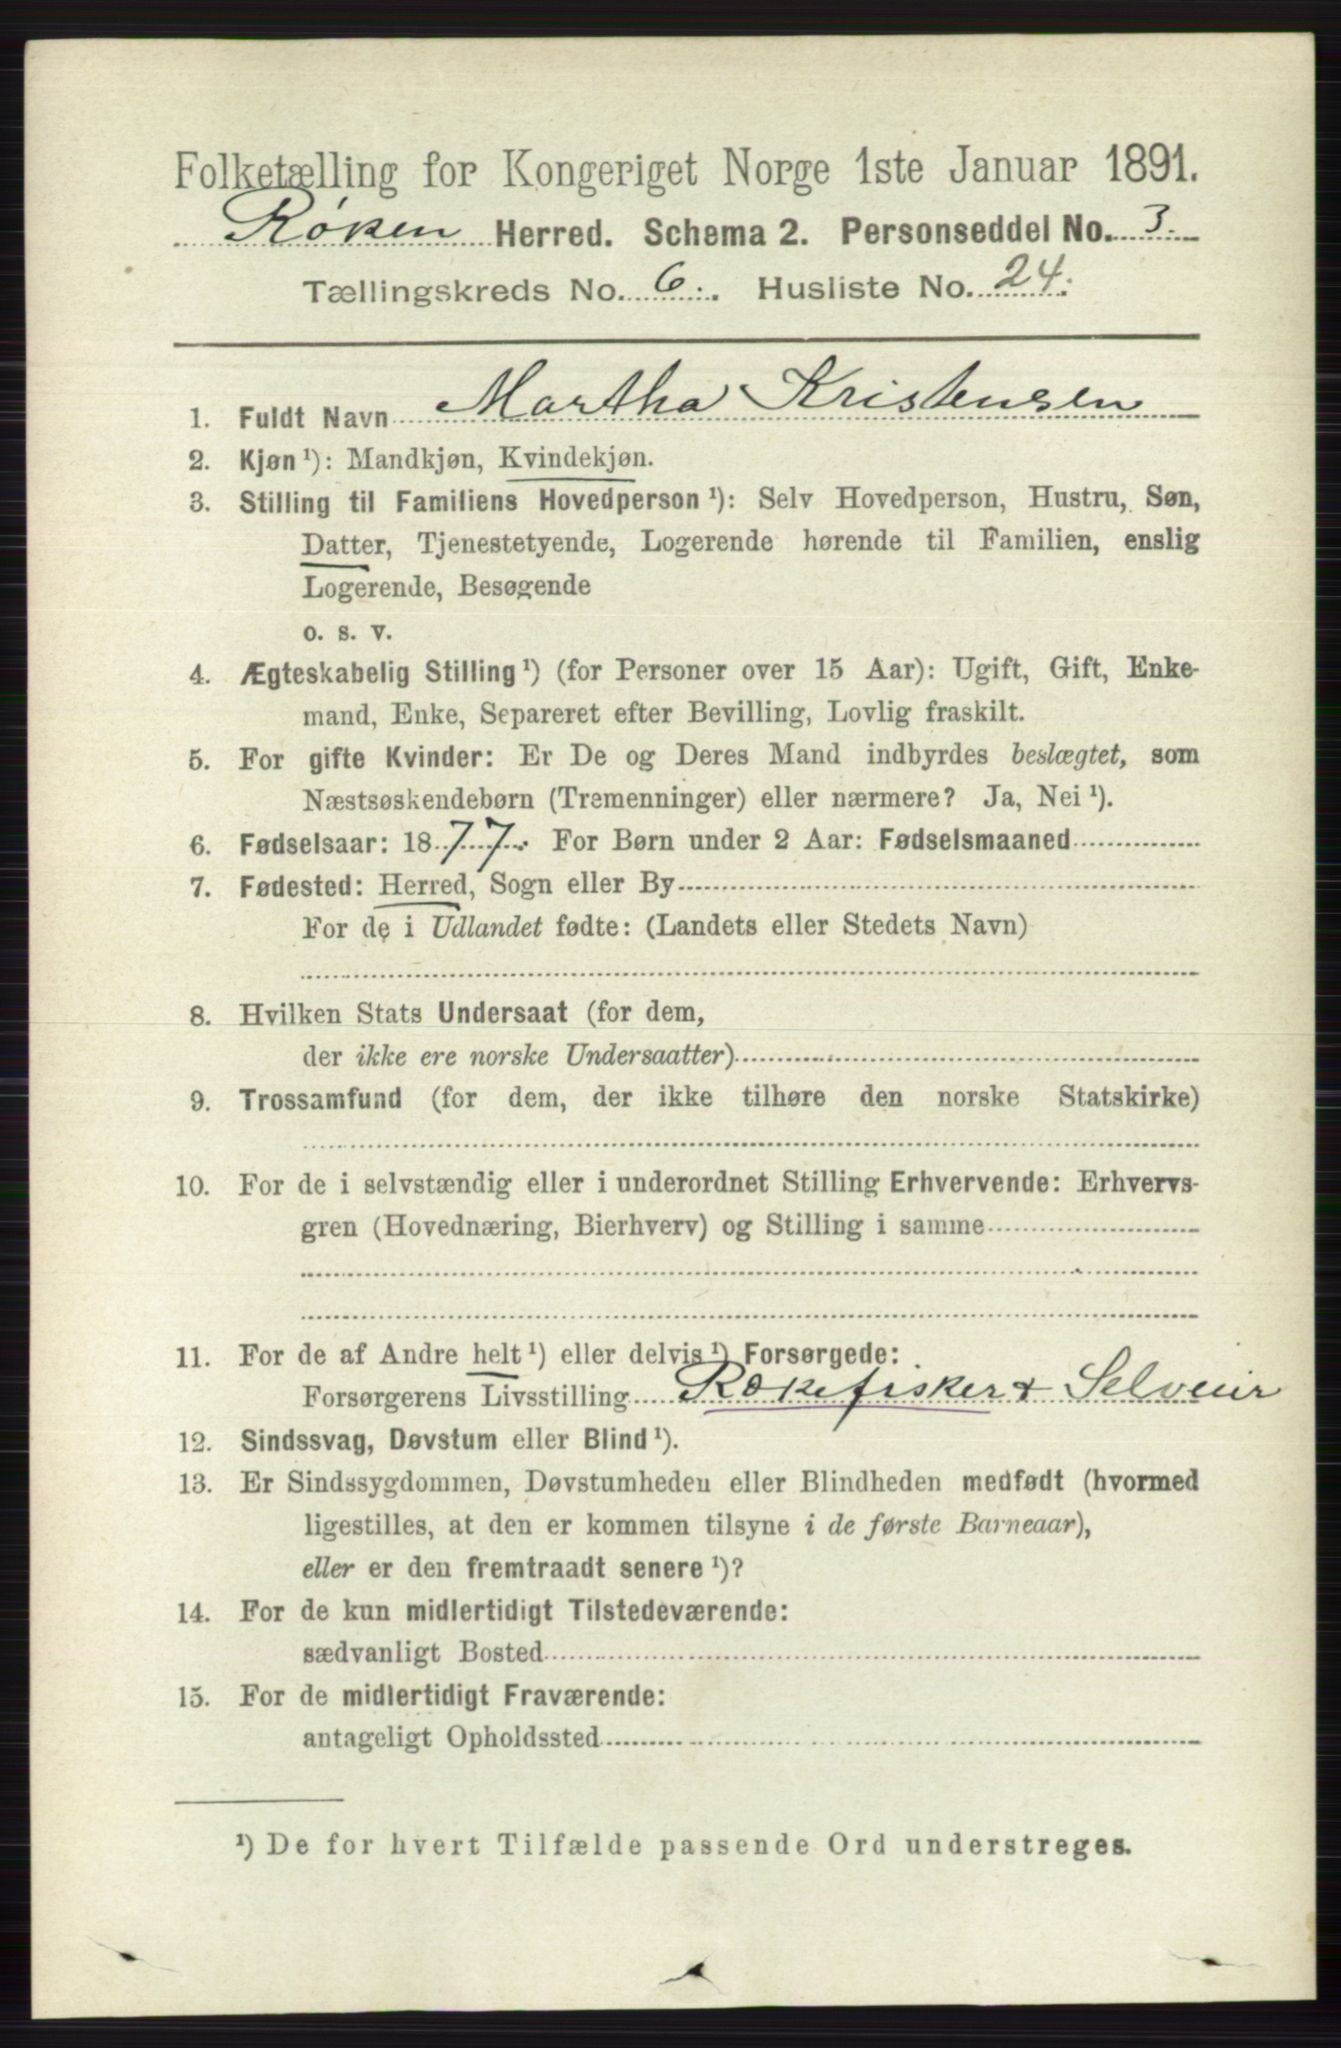 Folketælling for Kongeriget Norge 1ste Januar 1891.
Røken Herred. Schema 2. Personseddel No. 3.
Tællingskreds No. 6. Husliste No. 24.
1. Fuldt Navn Martha Kristensen
2. Kjøn ¹): Mandkjøn, Kvindekjøn.
3. Stilling til Familiens Hovedperson ¹): Selv Hovedperson, Hustru, Søn,
Datter, Tjenestetyende, Logerende hørende til Familien, enslig
Logerende, Besøgende
o. s. v.
4. Ægteskabelig Stilling ¹) (for Personer over 15 Aar): Ugift, Gift, Enke-
mand, Enke, Separeret efter Bevilling, Lovlig fraskilt.
5. For gifte Kvinder: Er De og Deres Mand indbyrdes beslægtet, som
Næstsøskendebørn (Tremenninger) eller nærmere? Ja, Nei ¹).
6. Fødselsaar: 1877. For Børn under 2 Aar: Fødselsmaaned
7. Fødested: Herred, Sogn eller By
For de i Udlandet fødte: (Landets eller Stedets Navn)
8. Hvilken Stats Undersaat (for dem,
der ikke ere norske Undersaatter)
9. Trossamfund (for dem, der ikke tilhøre den norske Statskirke)
10. For de i selvstændig eller i underordnet Stilling Erhvervende: Erhvervs-
gren (Hovednæring, Bierhverv) og Stilling i samme
11. For de af Andre helt ¹) eller delvis ¹) Forsørgede:
Forsørgerens Livsstilling Rækefisker + Selveier
12. Sindssvag, Døvstum eller Blind ¹).
13. Er Sindssygdommen, Døvstumheden eller Blindheden medfødt (hvormed
ligestilles, at den er kommen tilsyne i de første Barneaar),
eller er den fremtraadt senere ¹)?
14. For de kun midlertidigt Tilstedeværende:
sædvanligt Bosted
15. For de midlertidigt Fraværende:
antageligt Opholdssted
¹) De for hvert Tilfælde passende Ord understreges.